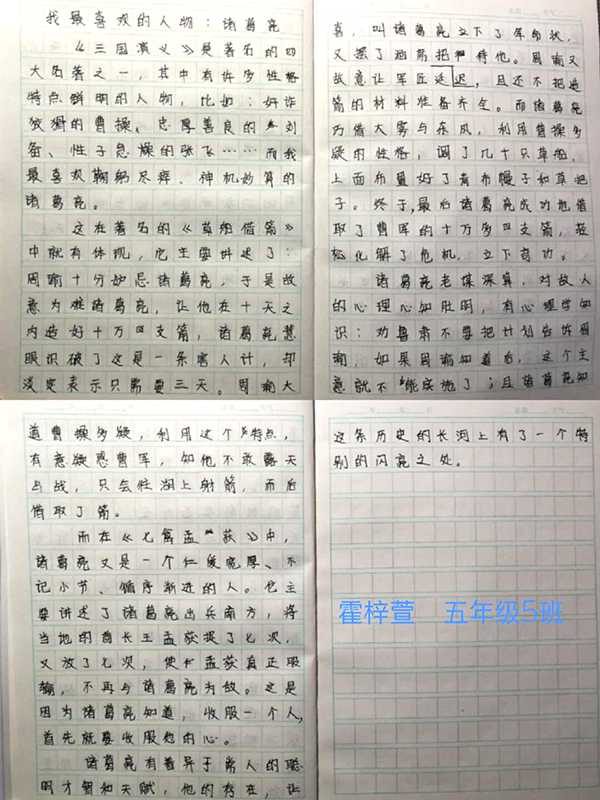 我最喜欢的人物：诸葛亮
《三国演义》是著名的四
大名著之一，其中有许多性格
特点鲜明的人物，比如：奸诈
狡猾的曹操、忠厚善良的刘
备、性子急燥的张飞……而我
最喜欢鞠躬尽瘁、神机妙算的
诸葛亮。
这在著名的《草船借箭》
中就有体现，它主要讲述了：
周瑜十分妒忌诸葛亮，于是故
意为难诸葛亮，让他在十天之
内造好十万支箭，诸葛亮慧
眼识破了这是一条害人计，却
淡定表示只需要三天。周瑜大
喜，叫诸葛亮立下了军令状，
又摆了酒席把待他。周瑜又
故意让军匠延迟，且还不把造
箭的材料准备齐全。而诸葛亮
巧借大雾与东风，利用曹操多
疑的性格，调了几十只草船，
上面布置好了青布幔子和草把
子。终于，最后诸葛亮成功地借
取了曹军的十万多支箭，轻
松化解了危机，立下奇功。
诸葛亮老谋深算，对敌人
的心理心知肚明，有心理学知
识：劝鲁肃不要把计划告诉周
瑜，如果周瑜知道后，这个主
意就不能实施了；且诸葛亮知
道曹操多疑，利用这个特点，
有意疑惑曹军，知他不敢露天
与战，只会往湖上射箭，而后
借取了箭。
而在《七禽孟获》中，
诸葛亮又是一个仁慈宽厚、不
记小节、循序渐进的人。它主
要讲述了诸葛亮出兵南方，将
当地的酋长王孟获捉了七次，
又放了七次，使孟获真正服
输，不再与诸葛亮为敌。这是
因为诸葛亮知道，收服一个人，
首先就要收服他的心。
诸葛亮有着异于常人的聪
明才智和天赋，他的存在，让
这条历史的长河上有了一个特
别的闪亮之处。
霍梓萱 五年级5班